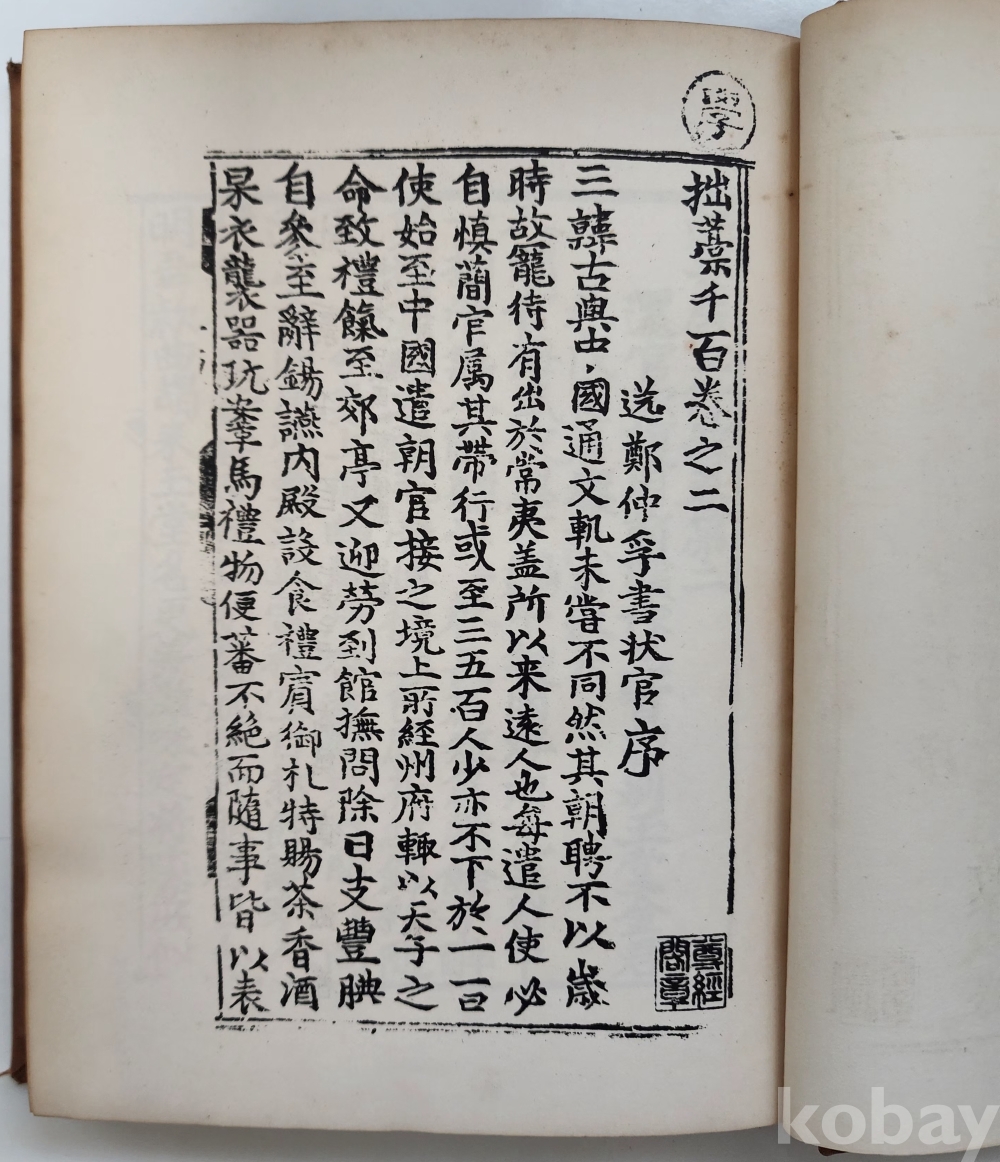 學
拙藁千百卷之二
送鄭仲孚書狀官序
三韓古與中國通文軌未嘗不同然其朝聘不以歲
時故寵待有出於常夷盖所以来遠人也每遣人使必
自慎蕳官属其帶行或至三五百人少亦不下於一百
使始至中國遣朝官接之境上所経州府輙以天子之
命致禮餼至郊亭又迎勞到館撫問除日支豐腆
自叅至辭錫讌內殿設食禮賔御札特賜茶香酒
果衣襲器玩鞌馬禮物便蕃不絶而隨事皆以表
尊經
閣章
kobay